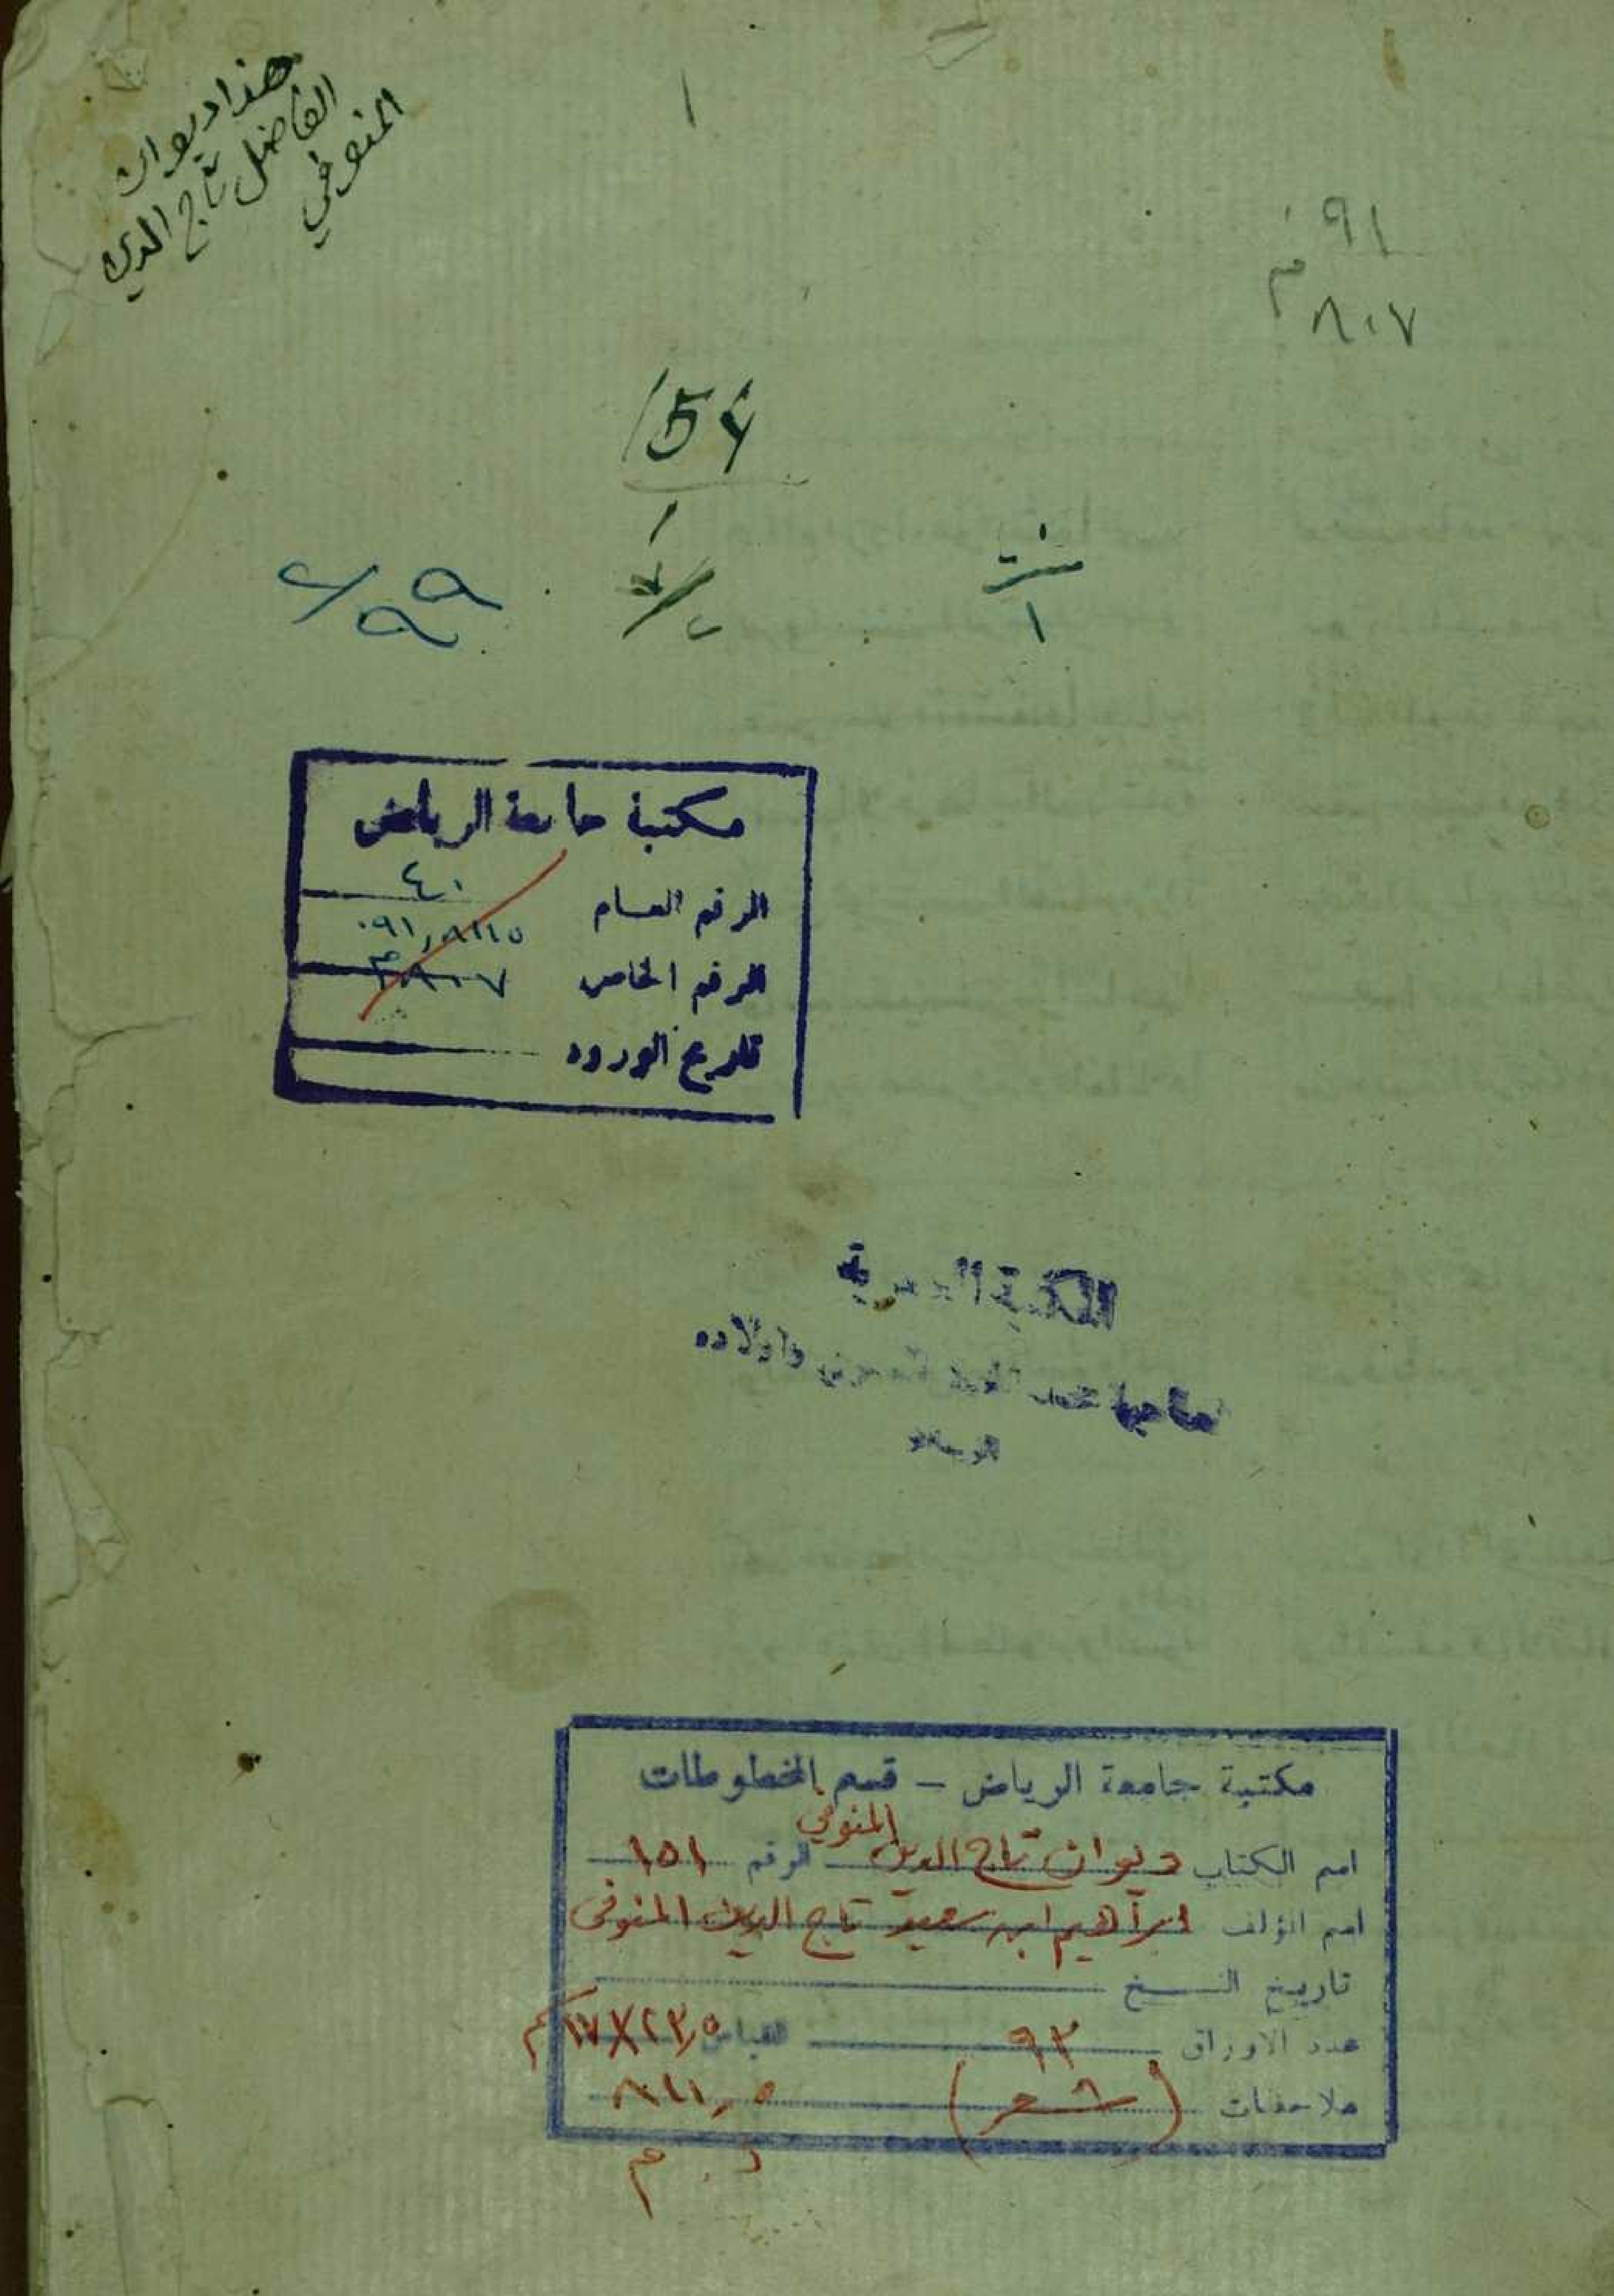 هذا ديوان
الفاضل تاج الدين
المنوفي
١
٩١
م
٨٠٧
154
مكتبة جامعة الرياض
الرقم العام ٤٠
الرقم الخاص
تاريخ الورود
المكتبة
صاحبها محمد وأولاده
مكتبة جامعة الرياض - قسم المخطوطات
اسم الكتاب ديوان تاج الدين المنوفي الرقم ١٥١
اسم المؤلف ابراهيم ابن سعيد تاج الدين المنوفى
تاريخ النسخ
عدد الاوراق ٩٣ القياس ٢٣,٥ × ١٧ سم
ملاحظات (شعر) ٨١١,٥
د . م